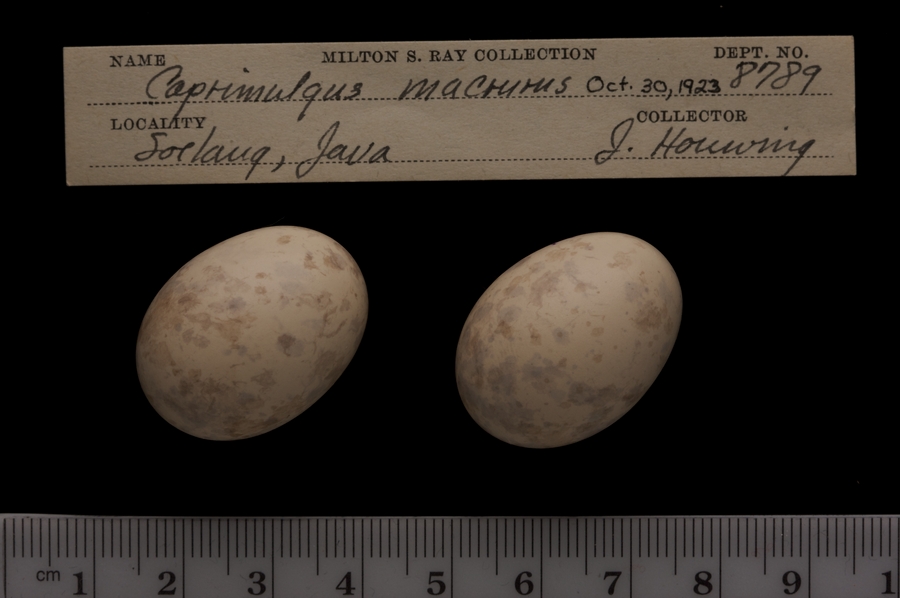 NAME MILTON S. RAY COLLECTION DEPT. NO.
Caprimulgus macrurus Oct. 30, 1923 8789
LOCALITY COLLECTOR
Java J. Houwing
cm 1 2 3 4 5 6 7 8 9 1